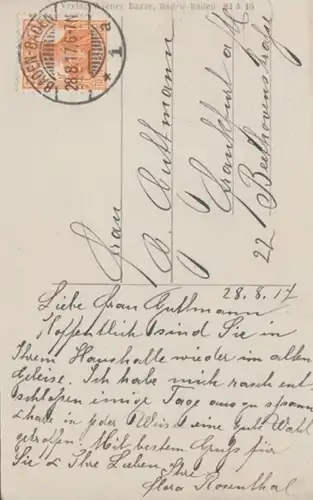 Verlag Wiener Bazar, Baden-Baden
BADEN-BADEN
28.8.17.6-7N
* 1 a
Frau
B. Guthmann
Frankfurt a/M
22 Beethovenstraße
28.8.17
Liebe Frau Guthmann
Hoffentlich sind Sie in
Ihrem Haushalte wieder im alten
Geleise. Ich habe mich rasch ent
schloßen einige Tage auszuspann
& habe in jeder Weise eine gute Wahl
getroffen. Mit bestem Gruß für
Sie & Ihre Lieben Ihre
Flora Rosenthal